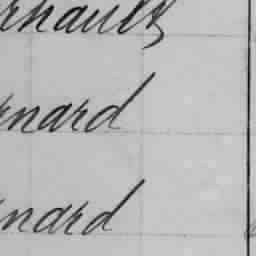 rnault
rnard
nard